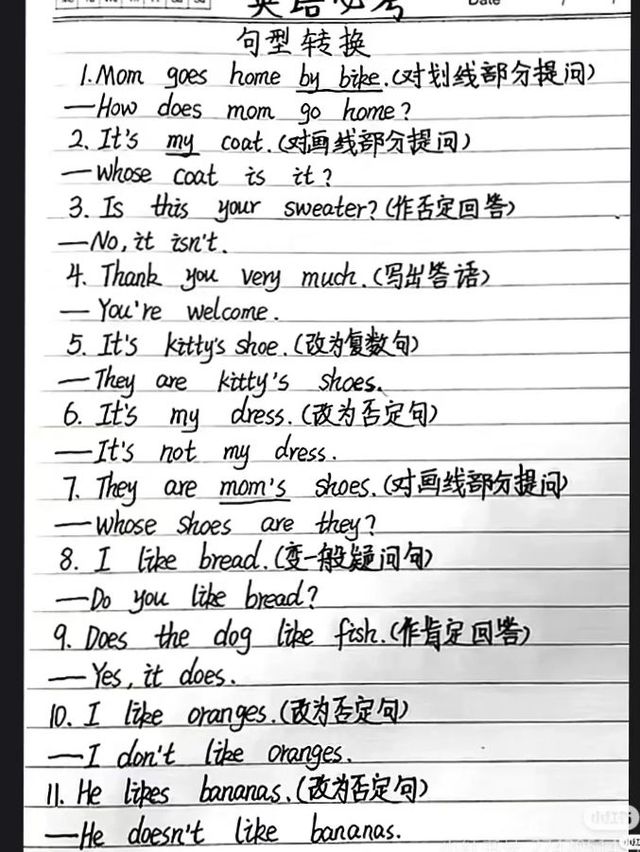 英语必考
Date / /
句型转换
1. Mom goes home by bike. (对划线部分提问)
—How does mom go home?
2. It's my coat. (对画线部分提问)
—whose coat is it?
3. Is this your sweater? (作否定回答)
—No, it isn't.
4. Thank you very much. (写出答语)
—You're welcome.
5. It's kitty's shoe. (改为复数句)
—They are kitty's shoes.
6. It's my dress. (改为否定句)
—It's not my dress.
7. They are mom's shoes. (对画线部分提问)
—whose shoes are they?
8. I like bread. (变一般疑问句)
—Do you like bread?
9. Does the dog like fish. (作肯定回答)
—Yes, it does.
10. I like oranges. (改为否定句)
—I don't like oranges.
11. He likes bananas. (改为否定句)
—He doesn't like bananas.
小红书